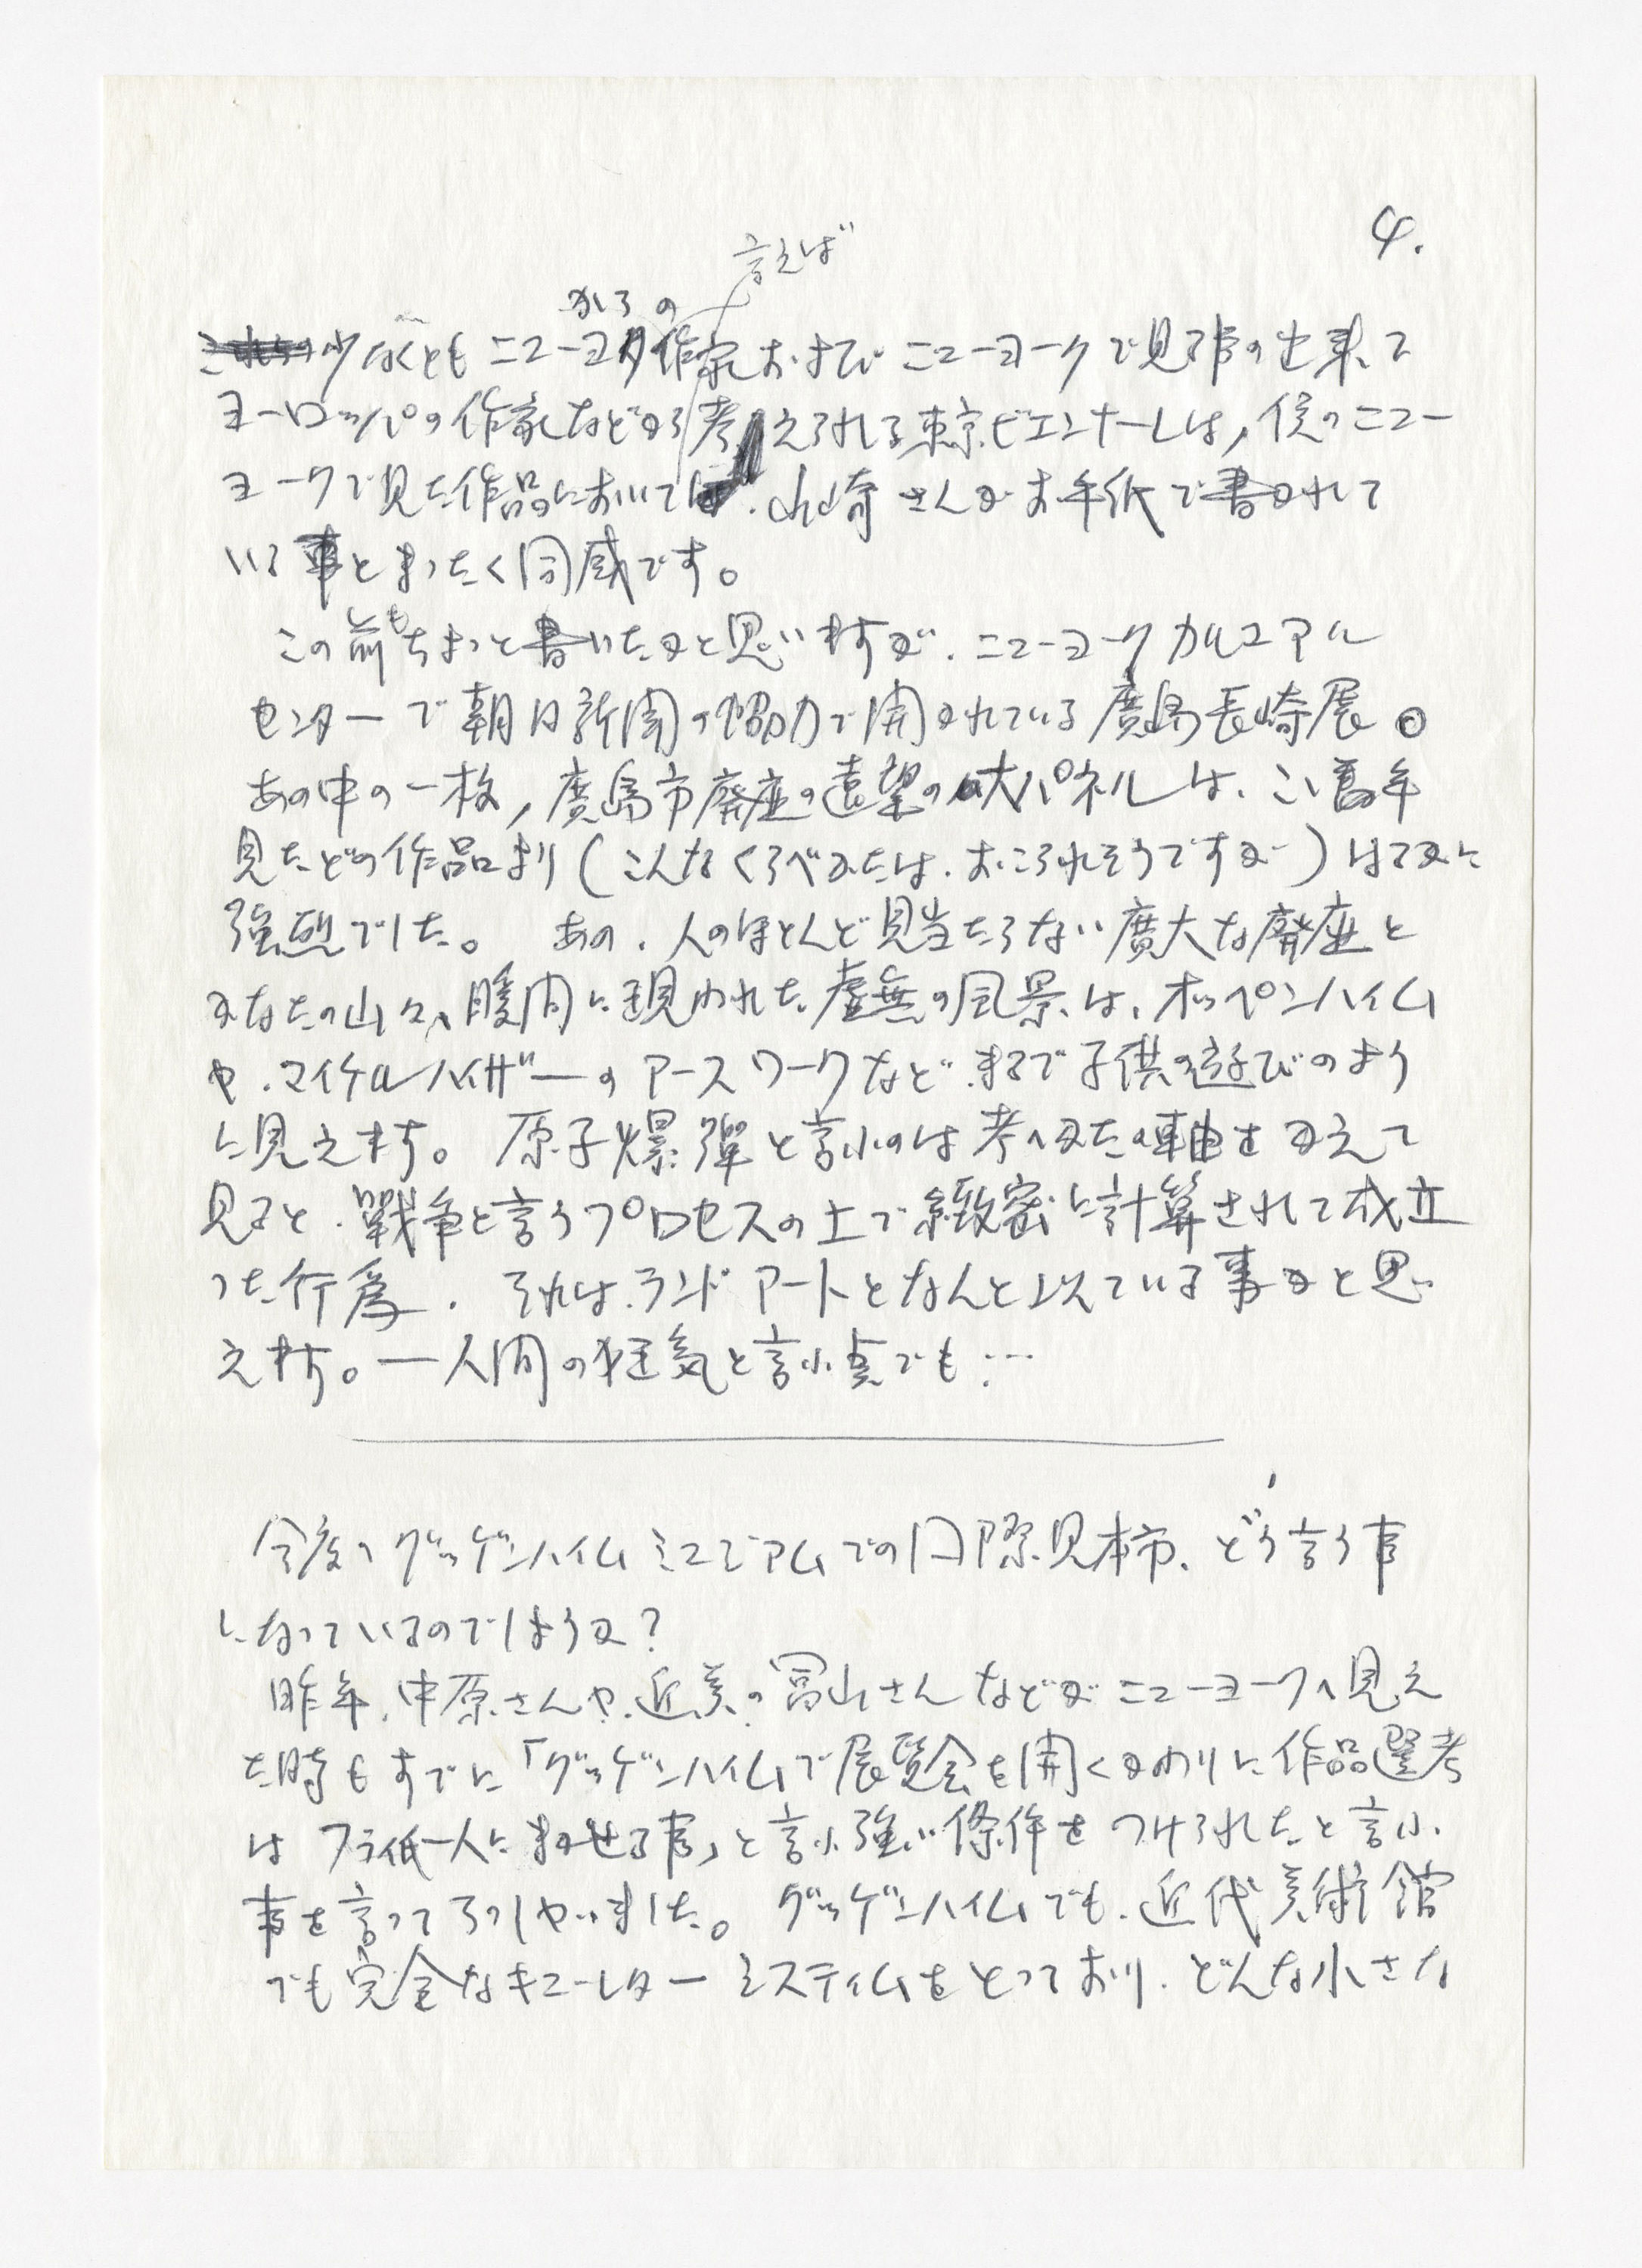 4.
言えば
からの
少なくとも ニューヨーク作家およびニューヨークで見る事の出来て
ヨーロッパの作家などから考えられる東京ビエンナーレは，僕のニュー
ヨークで見た作品においては．山崎さんがお手紙で書かれて
いる事とまったく同感です。
この前もちょっと書いたかと思いますが．ニューヨークカルユアル
センターで朝日新聞の協力で開かれている廣島長崎展。
あの中の一枚，廣島市廃墟の遠望の大パネルは、こゝ数年
見たどの作品より（こんなくらべかたは．おこられそうですが）はるかに
強烈でした。 あの．人のほとんど見当たらない廣大な廃墟と
かなたの山々、瞬間に現われた虚無の風景は、オッペンハイム
や．マイケルハイザーのアースワークなど．まるで子供の遊びのよう
に見えます。 原子爆弾と言ふのは考へかたの軸をかえて
見ると．戰争と言うプロセスの上で緻密に計算されて成立
った行為． それは．ランドアートとなんと似ている事かと思
えます。―人間の狂気と言ふ点でも…
今度のグッゲンハイムミュージアムでの国際見本市、どう言う事
になっているのでしょうか？
昨年．中原さんや．近美の富山さんなどがニューヨークへ見え
た時もすでに「グッゲンハイムで展覧会を開くかわりに作品選考
は フライ氏一人にまかせる事」と言ふ強い條件をつけられたと言ふ
事を言ってらっしゃいました。 グッゲンハイムでも．近代美術館
でも完全なキューレターシスティムをとっており．どんな小さな